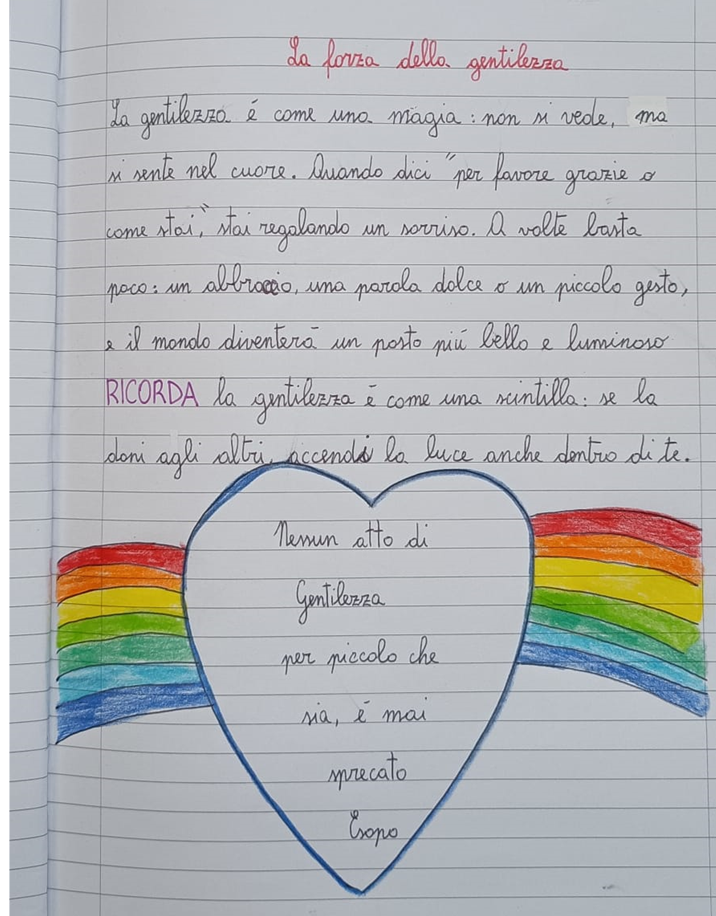 La forza della gentilezza
La gentilezza é come una magia: non si vede, ma
si sente nel cuore. Quando dici "per favore grazie o
come stai", stai regalando un sorriso. A volte basta
poco: un abbraccio, una parola dolce o un piccolo gesto,
e il mondo diventerà un posto piú bello e luminoso
RICORDA la gentilezza é come una scintilla: se la
doni agli altri, accendi la luce anche dentro di te.
Nessun atto di
Gentilezza
per piccolo che
sia, é mai
sprecato
Esopo